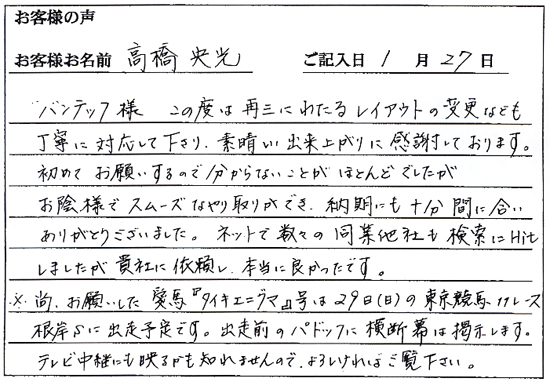 お客様の声
お客様お名前 高橋 央光 ご記入日 1 月 27 日
バンテック様 この度は再三にわたるレイアウトの変更なども
丁寧に対応して下さり、素晴しい出来上がりに感謝しております。
初めてお願いするので分からないことがほとんどでしたが
お陰様でスムーズなやり取りができ、納期にも十分間に合い
ありがとうございました。ネットで数々の同業他社も検索にHit
しましたが貴社に依頼し、本当に良かったです。
※尚、お願いした愛馬『タイキエニグマ』号は29日(日)の東京競馬11レース
根岸Sに出走予定です。出走前のパドックに横断幕は掲示します。
テレビ中継にも映るかも知れませんので、よろしければご覧下さい。